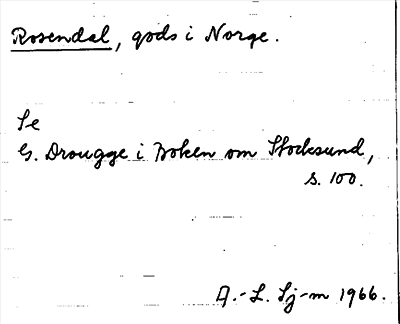 Rosendal, gods i Norge.
Se
G. Drougge i Boken om Stocksund,
s. 100.
A.-L. Sj-m 1966.